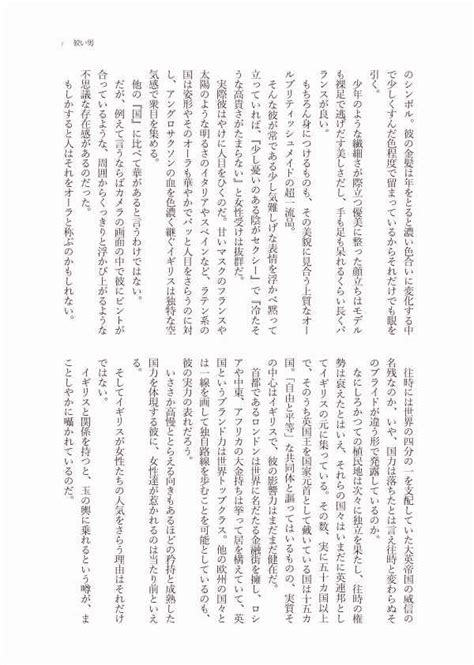 狡い男
のシンボル。彼の金髪は年をとると濃い色合いに変化する中
で少しくすんだ色程度で留まっているからそれだけでも眼を
引く。
少年のような繊細さが際立つ優美に整った顔立ちはモデル
も裸足で逃げだす美しさだし、手も足も呆れるくらい長くバ
ランスが良い。
もちろん身につけるものも、その美貌に見合う上質なオー
ルブリティッシュメイドの超一流品。
そんな彼が常である少し気難しげな表情を浮かべ黙って
立っていれば、『少し憂いのある陰がセクシー』で『冷たそ
うな高貴さがたまらない』と女性受けは抜群だ。
実際彼はやけに人目をひくのだ。甘いマスクのフランスや
太陽のような明るさのイタリアやスペインなど、ラテン系の
国は姿形やそのオーラも華やかでパッと人目をさらうのに対
し、アングロサクソンの血を色濃く継ぐイギリスは独特な空
気感で衆目を集める。
他の『国』に比べて華があると言うわけではない。
だが、例えて言うならばカメラの画面の中で彼にピントが
合っているような、周囲からくっきりと浮かび上がるような
不思議な存在感があるのだった。
もしかすると人はそれをオーラと称ぶのかもしれない。
往時には世界の四分の一を支配していた大英帝国の威信の
名残なのか、いや、国力は落ちたとは言え往時と変わらぬそ
のプライドが違う形で発露しているのか。
なにしろかつての植民地は次々に独立を果たし、往時の権
勢は衰えたとはいえ、それらの国々はいまだに英連邦とし
てイギリスの元に集っている。その数、実に五十カ国以上
で、そのうち英国王を国家元首として戴いている国は十五カ
国。『自由と平等』な共同体と謳ってはいるものの、実質そ
の中心はイギリスで、彼の影響力はまだまだ健在だ。
首都であるロンドンは世界に名だたる金融街を擁し、ロシ
アや中東、アフリカの大金持ちは挙って居を構えていて、英
国というブランド力は世界トップクラス。他の欧州の国々と
は一線を画して独自路線を歩むことを可能としているのも、
彼の実力の表れだろう。
いささか高慢ととらえる向きもあるほどの矜持と成熟した
国力を体現する彼に、女性達が惹かれるのは当たり前といえ
そしてイギリスが女性たちの人気をさらう理由はそれだけ
ではない。
イギリスと関係を持つと、玉の輿に乗れるという噂が、ま
ことしやかに囁かれているのだ。